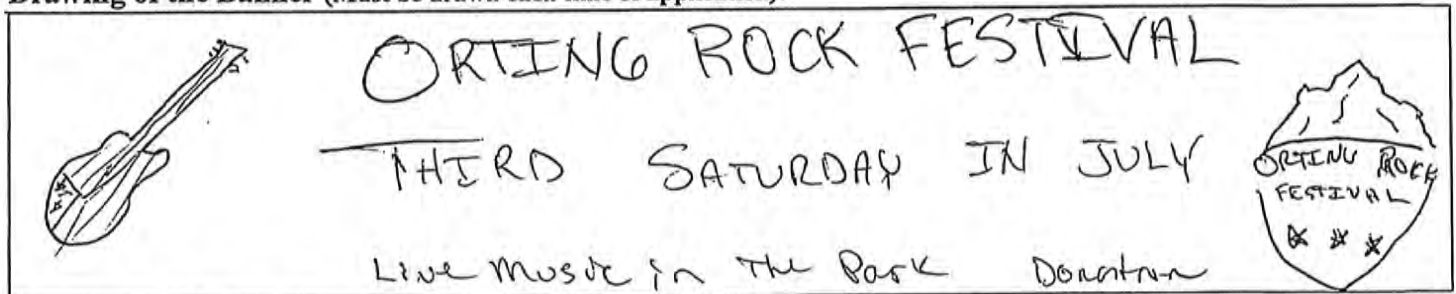 ORTING ROCK FESTIVAL
THIRD SATURDAY IN JULY
Live Music in The Park
ORTING ROCK
FESTIVAL